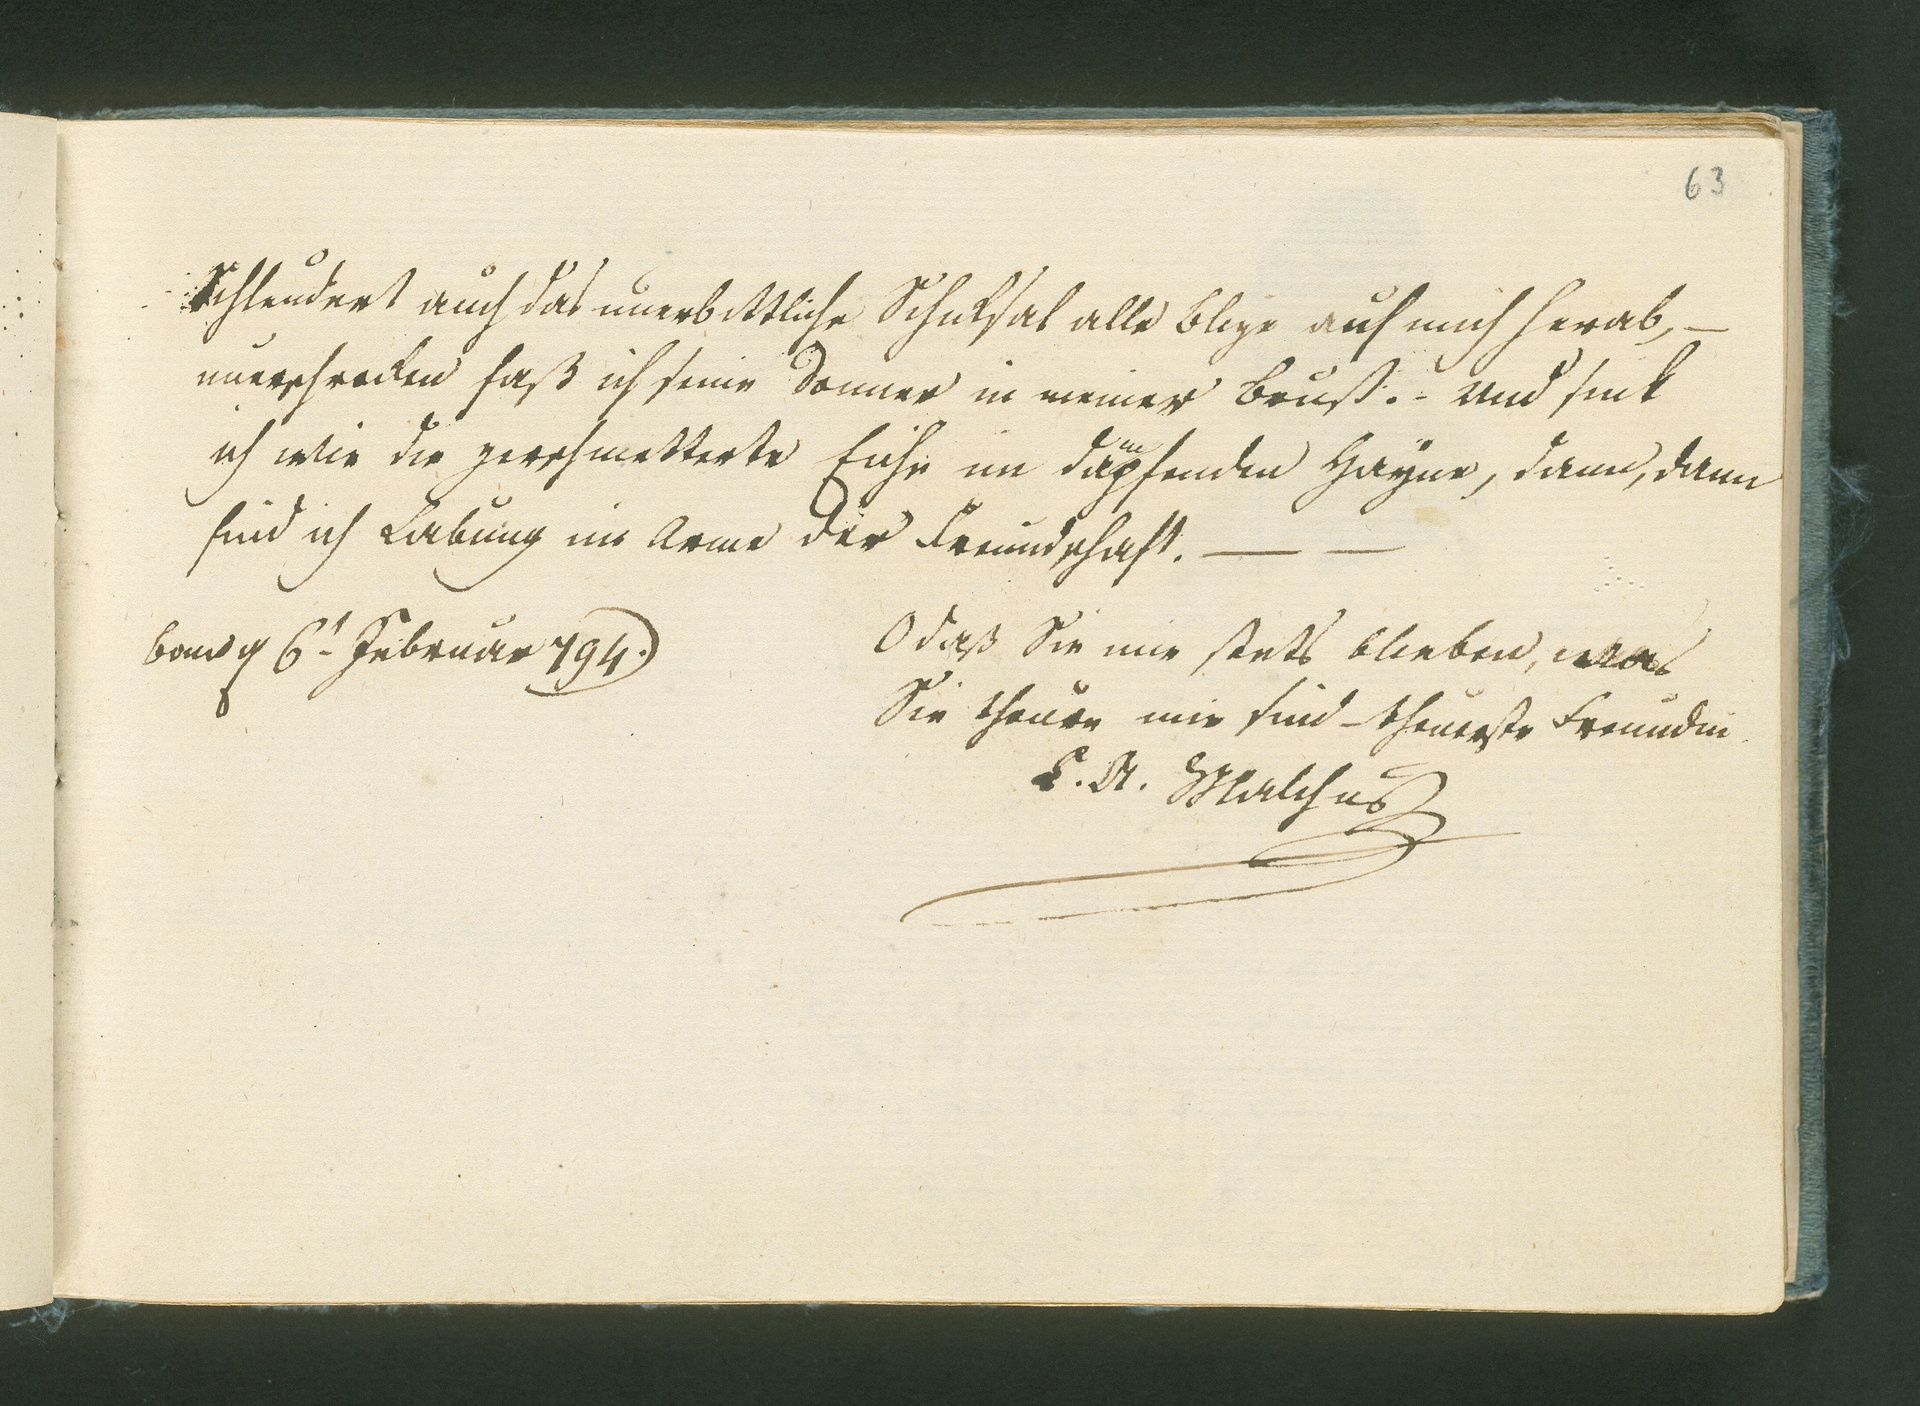 63
Schleudert auch das unerbittliche Schiksal alle Blize auf mich herab, —
unerschroken faß ich seine Donner in meiner Brust. - Und sink
ich wie die zerschmetterte Eiche im dampfenden Hayne, dann, dann
find ich Labung im Arme der Freundschaft. — —
6t Februar 794.
O daß Sie mir stets blieben, was
Sie theure mir sind - theuerste Freundin
C. A. Malchus